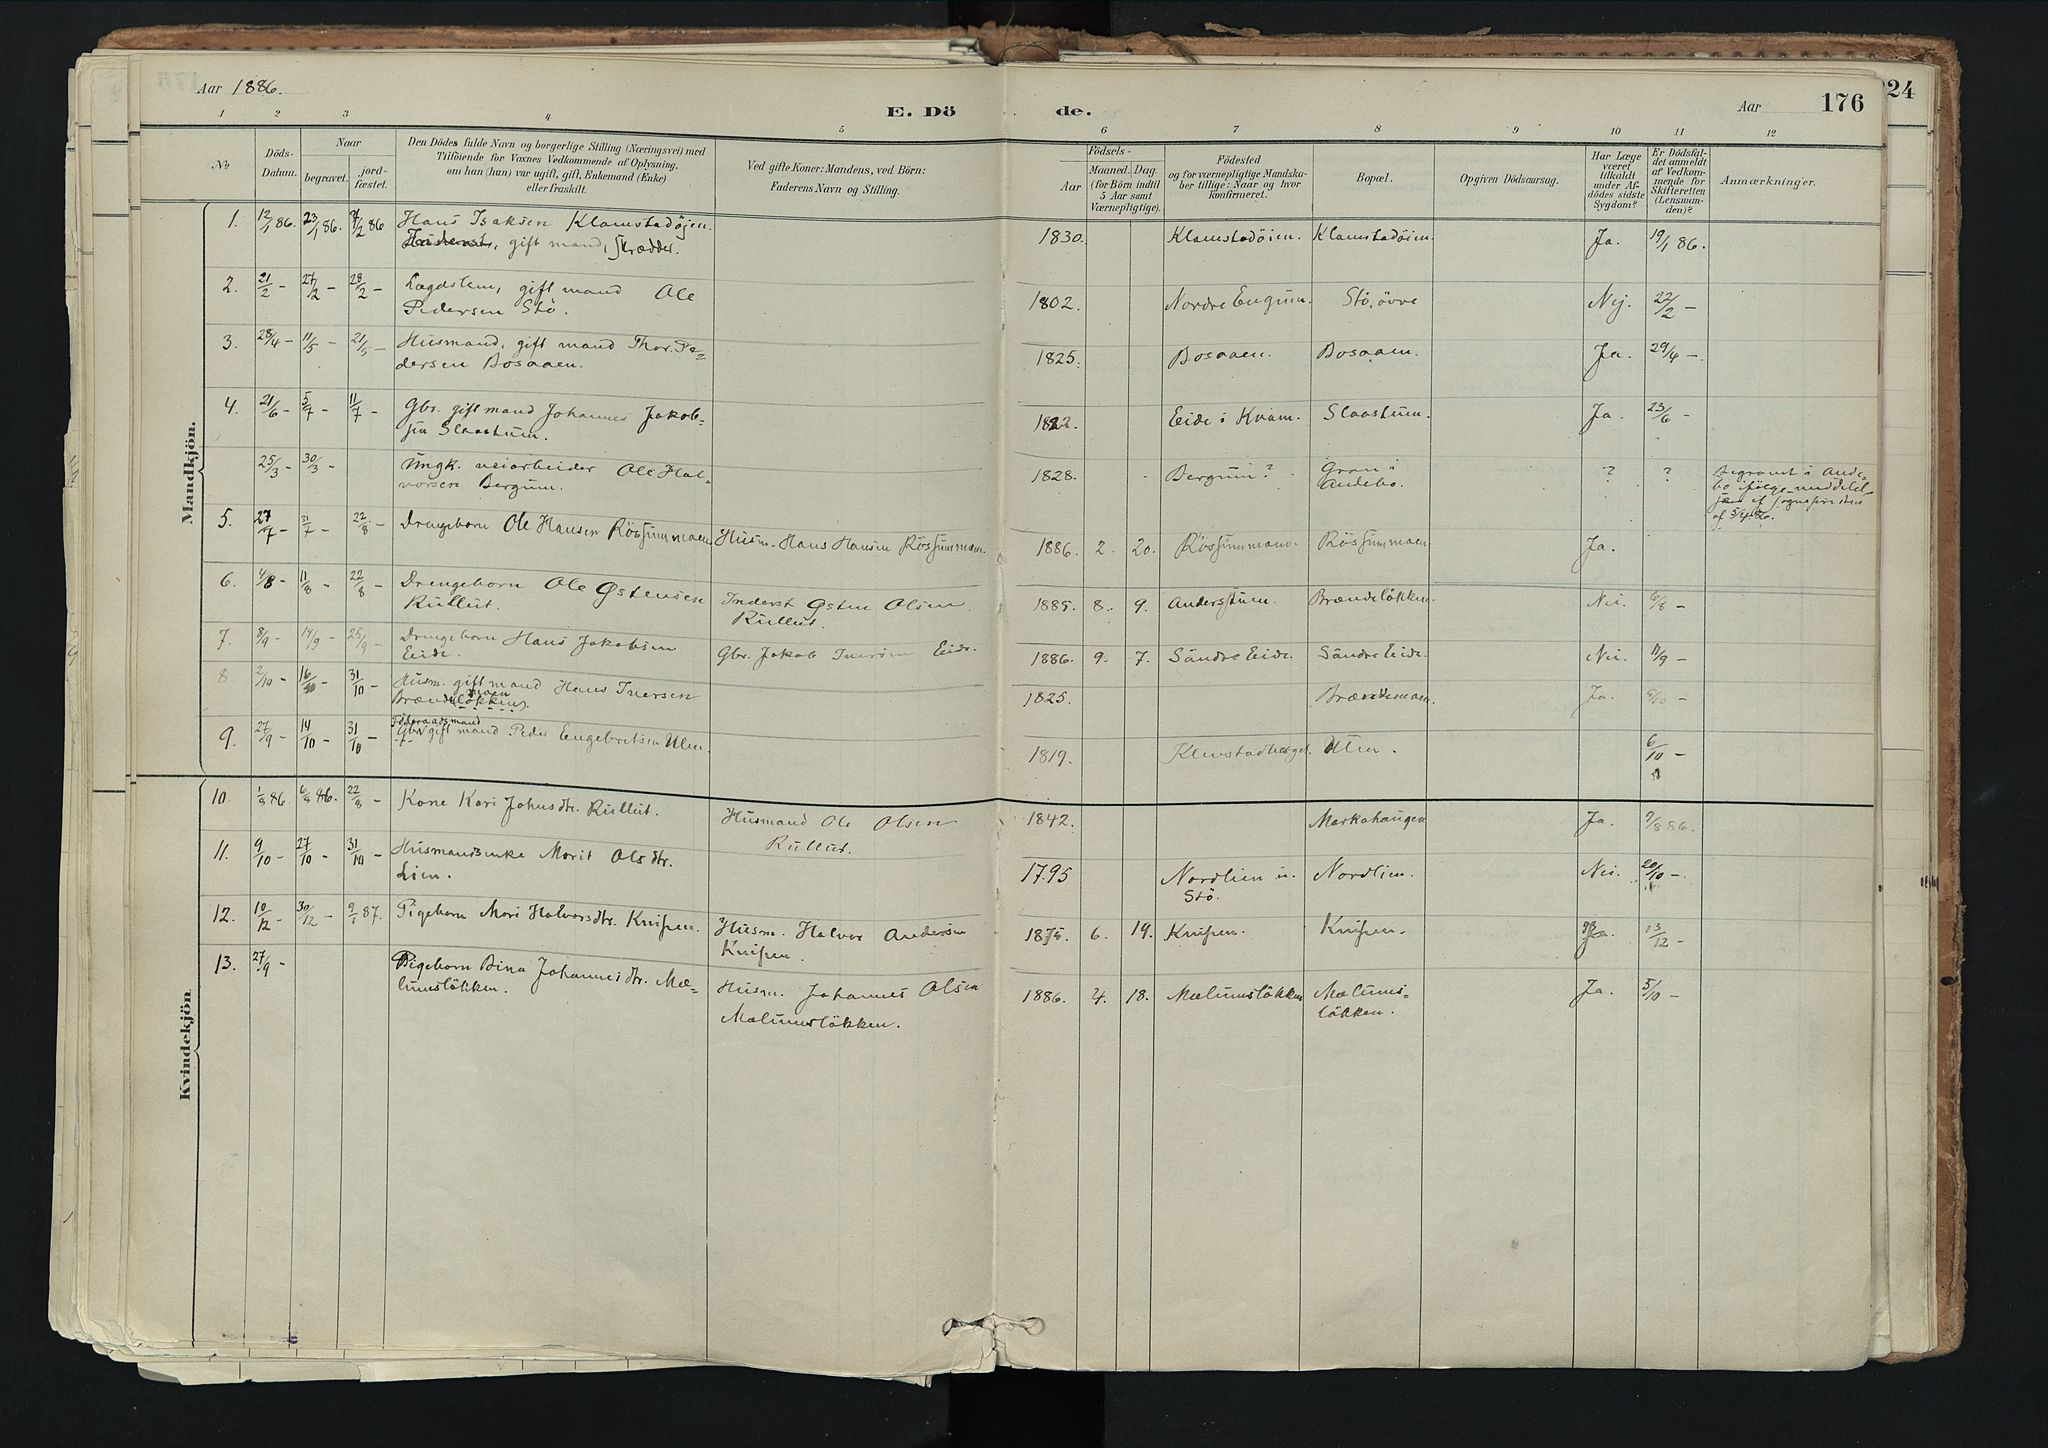 Aar 1886.
E. Dö de.
Aar 176
24
1 2 3 4 5 6 7 8 9 10 11 12
№
Döds-
Datum.
Naar
begravet.
jord-
fæstet.
Den Dödes fulde Navn og borgerlige Stilling (Næringsvei) med
Tilföiende for Voxnes Vedkommende af Oplysning,
om han (hun) var ugift, gift, Enkemand (Enke)
eller fraskilt.
Ved gifte Koner: Mandens, ved Börn:
Faderens Navn og Stilling.
Födsels-
Aar
Maaned. Dag.
(for Börn indtil
5 Aar samt
Værnepligtige).
Födested
og for værnepligtige Mandska-
ber tillige: Naar og hvor
konfirmeret.
Bopæl.
Opgiven Dödsaarsag.
Har Læge
været
tilkaldt
under Af-
dödes sidste
Sygdom?
Er Dödsfal-
det anmeldt
af Vedkom-
mende for
Skifteretten
(Lensman-
den)?
Anmærkninger.
Mandkjön.
1. 12/1 86. 23/1 86. 7/2 86 Hans Isaksen Klamstadöjen. 1830. Klamstadöien. Klamstadöien. Ja. 19/1 86.
Inderst, gift mand, Skrædder.
2. 21/2 - 27/2 - 28/2 - Lægdslem, gift mand Ole 1802. Nordre Engum. Stö, övre Nej. 22/2 -
Pedersen Stö.
3. 28/4 - 11/5 - 21/5 - Husmand, gift mand Thor. Pe- 1825. Bosaaen. Bosaaen. Ja. 29/4 -
dersen Bosaaen.
4. 21/6 - 5/7 - 11/7 - Gbr. gift mand Johannes Jakob- 1822. Eide i Kvam. Slaastuen. Ja. 23/6 -
sen Slaastuen.
25/3 - 30/3 - Ungk. veiarbeider Ole Hal- 1828. Bergum? Gran i ? ? Begravet i Ande-
vorsen Bergum. Andebo. bo ifölge meddelel-
5. 27/7 - 31/7 - 22/8 - Drengebarn Ole Hansen Rössummoen. Husm. Hans Hansen Rössummoen. 1886. 2. 20. Rössummoen. Rössummoen Ja.
6. 4/8 - 11/8 - 22/8 - Drengebarn Ole Østensen Inderst Østen Olsen 1885. 8. 9. Andersstuen. Brændeløkken. Nei. 6/8 -
Rullut. Rullut.
7. 8/9 - 14/9 - 25/9 - Drengebarn Hans Jakobsen Gbr. Jakob Iversen Eide. 1886. 9. 7. Søndre Eide. Søndre Eide. Nei. 11/9 -
Eide.
8. 2/10 - 16/10 - 31/10 - Husm. gift mand Hans Iversen 1825. Brændemoen. Ja. 6/10 -
moen
Brændeløkken.
Föderaadsmand
9. 27/9 - 14/10 - 31/10 - Gbr. gift mand Peder Engebretsen Ulen. 1819. Klevstadberget. Ulen. 6/10 -
Kvindekjön
10. 1/8 86. 6/8 86. 22/8 - Kone Kari Johnsdtr. Rullut. Husmand Ole Olsen 1842. Markahaugen Ja. 9/8 86.
Rullut.
11. 9/10 - 27/10 - 31/10 - Husmandsenke Marit Olsdtr. 1795 Nordlien u. Nordlien. Nei. 20/10 -
Lien. Stö.
12. 10/12 - 30/12 - 9/1 87. Pigebarn Mari Halvorsdtr. Knipen. Husm. Halvor Andersen 1875. 6. 19. Knipen. Knipen. Ja. 13/12 -
Knipen.
13. 27/9 - Pigebarn Bina Johannesdtr. Mæ- Husm. Johannes Olsen 1886. 4. 18. Mælumsløkken Mælums- Ja. 5/10 -
lumsløkken. Mælumsløkken. løkken.